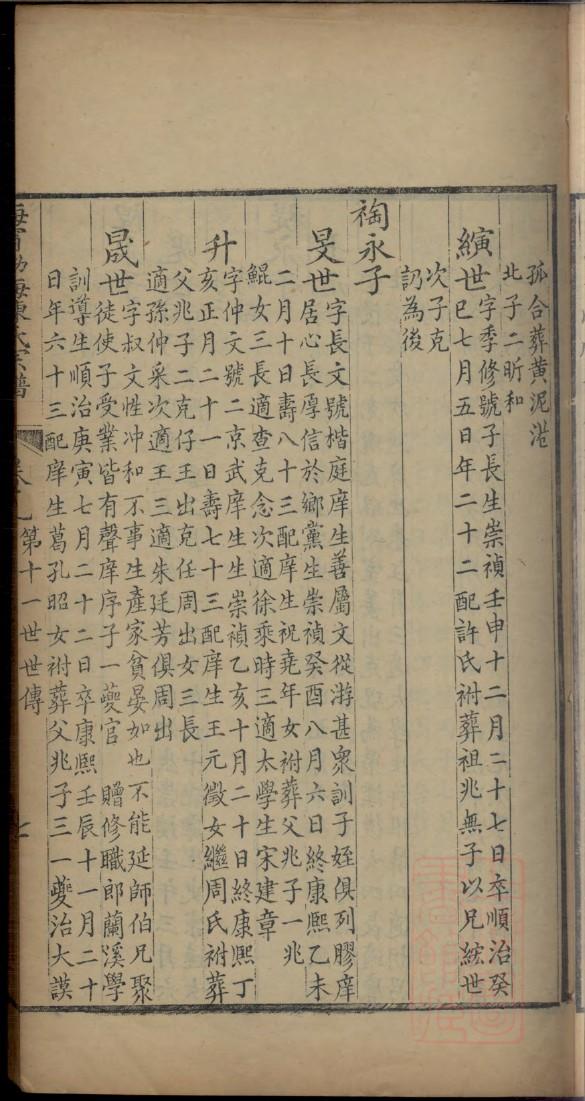 孤合葬黄泥港
北子二昕和
縯世字季修號子長生崇禎壬申十二月二十七日卒順治癸
巳七月五日年二十二配許氏祔葬祖兆無子以兄綋世
次子克
訒為後
裪永子
旻世字長文號楷庭庠生善屬文從游甚衆訓子姪俱列膠庠
居心長厚信於鄉黨生崇禎癸酉八月六日終康熙乙未
二月十日壽八十三配庠生祝堯年女祔葬父兆子一兆
鯤女三長適查克念次適徐乘時三適太學生宋建章
升字仲文號二京武庠生生崇禎乙亥十月二十日終康熙丁
亥正月二十一日壽七十三配庠生王元徵女繼周氏祔葬
父兆子二克仔王出克任周出女三長
適孫仲采次適王三適朱廷芳俱周出
晟世字叔文性冲和不事生產家貧晏如也不能延師伯兄聚
徒使子受業皆有聲庠序子一夔官 贈修職郎蘭溪學
訓導生順治庚寅七月二十二日卒康熙壬辰十一月二十
日年六十三配庠生葛孔昭女祔葬父兆子三一夔治大謨
海寧渤海陳氏宗譜
第十一世世傳
七